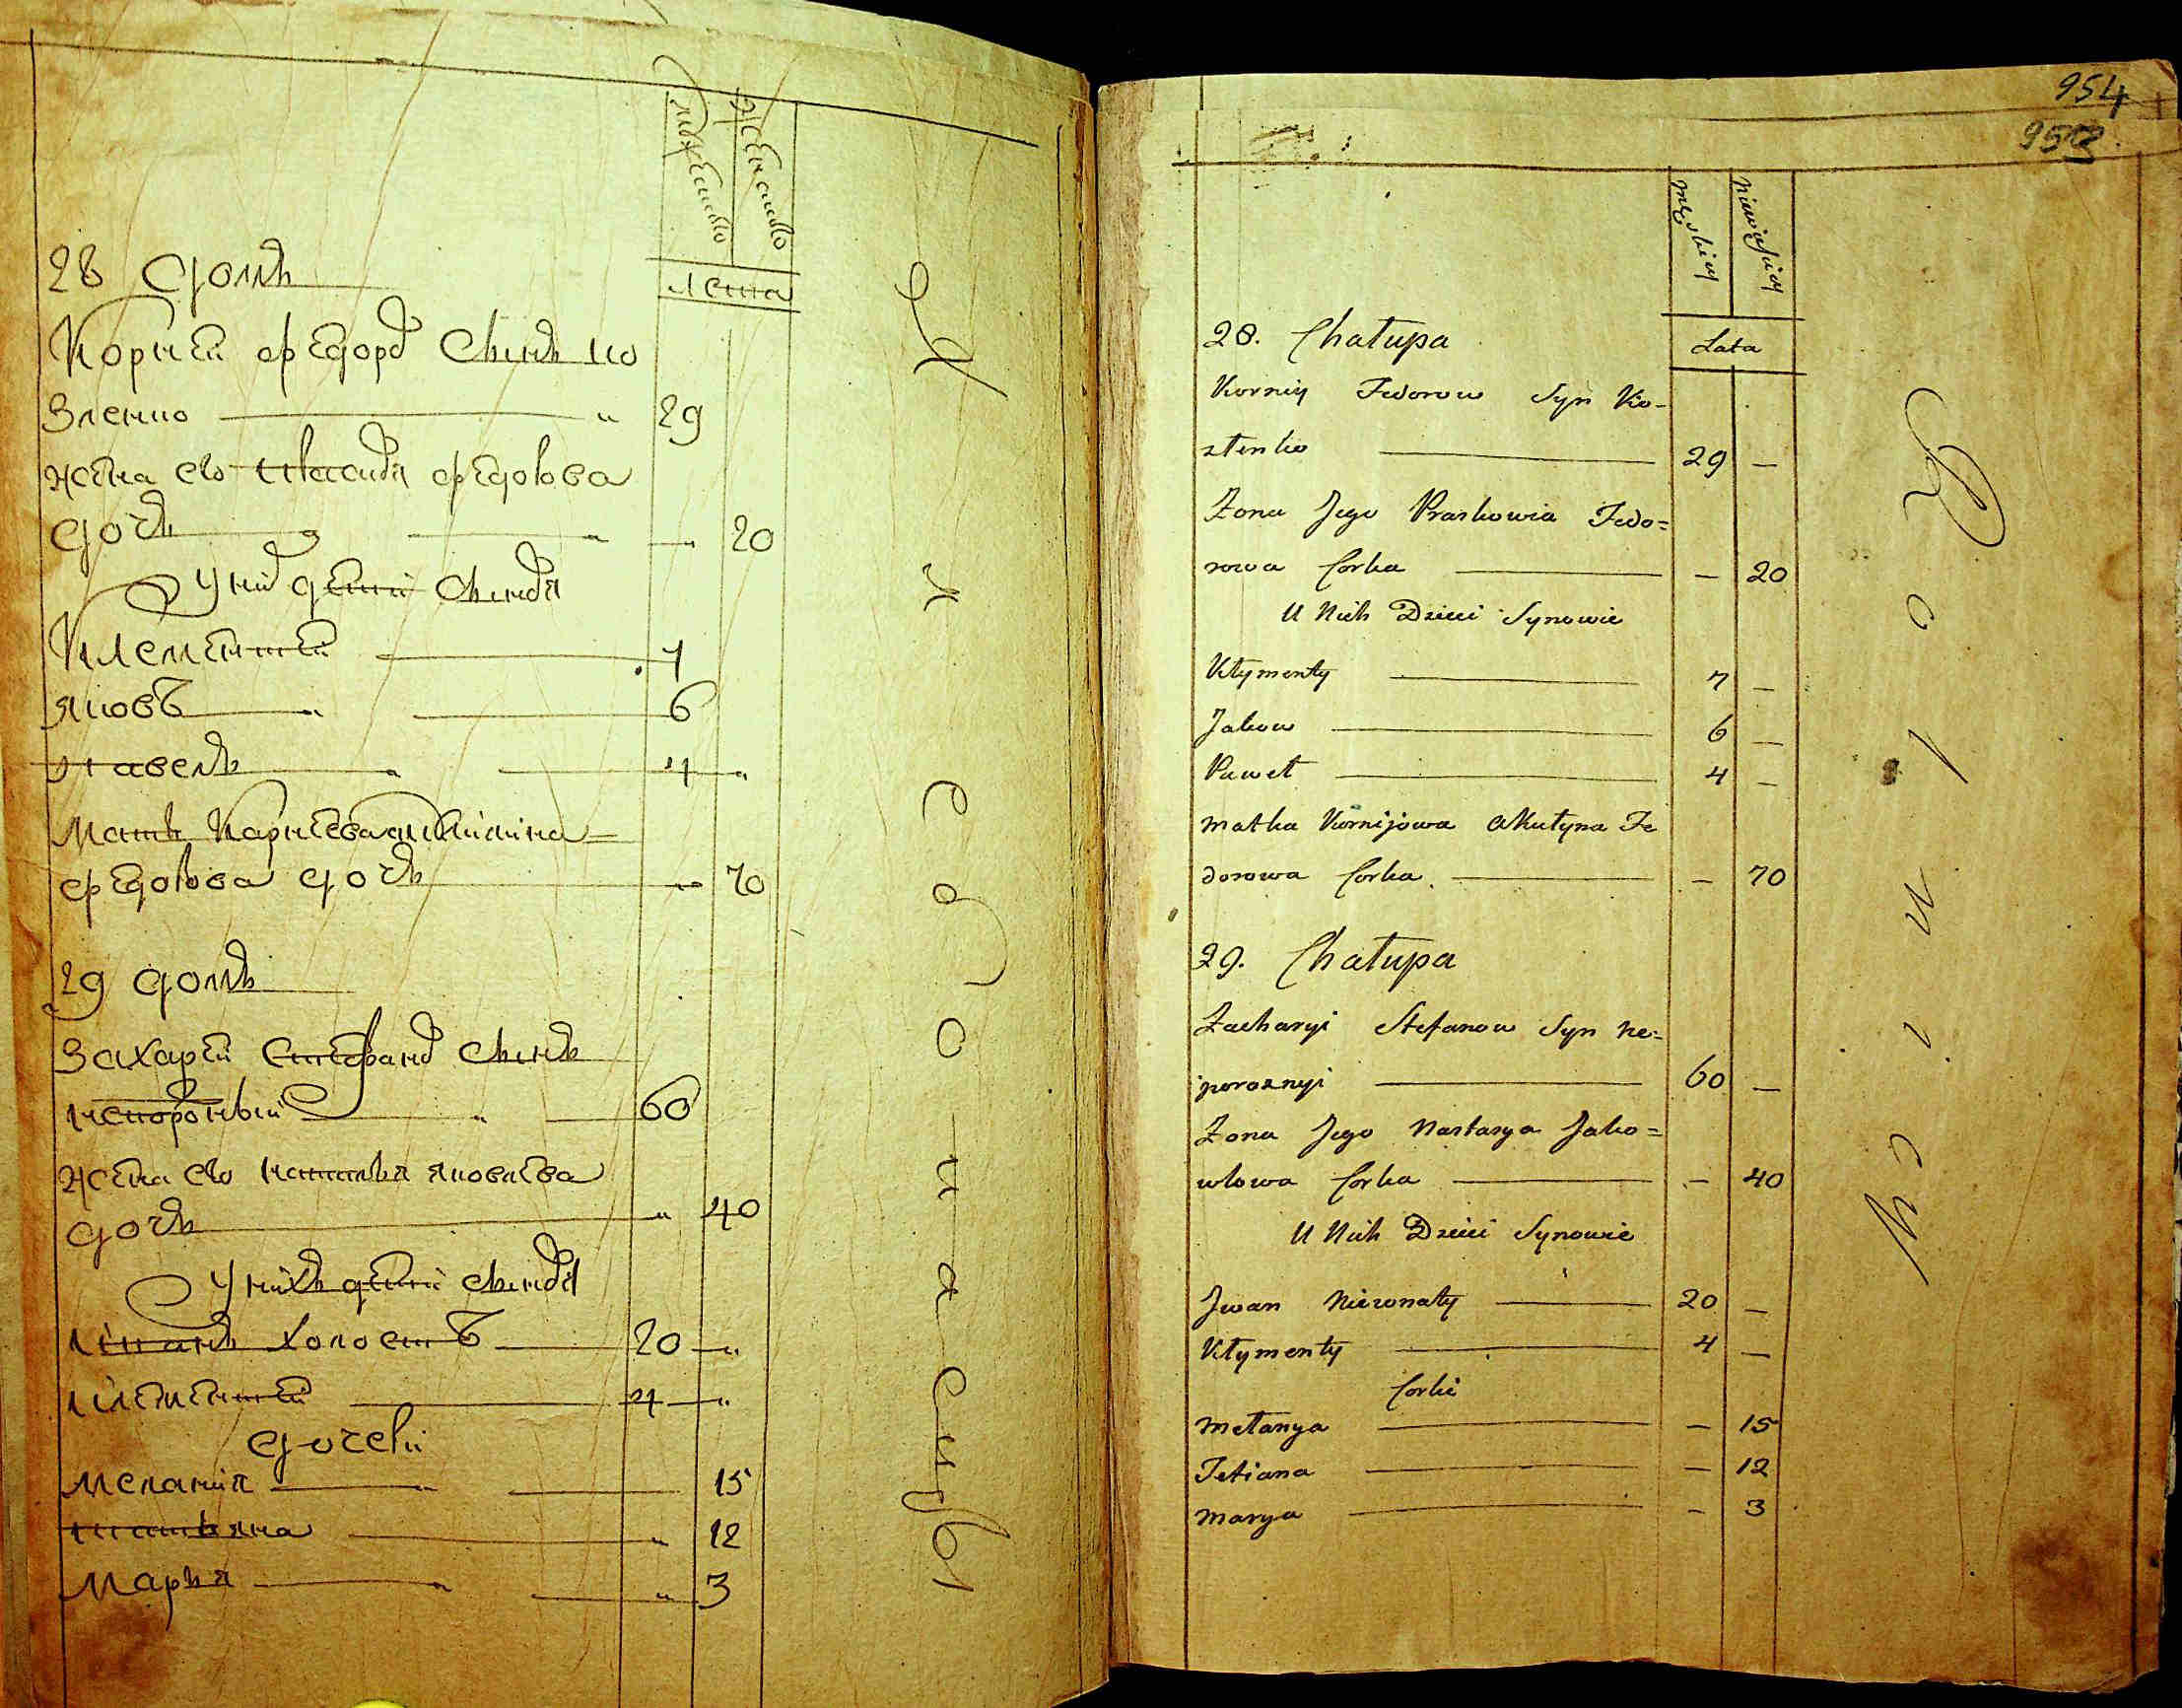 мужеска
женска
лета
28 домъ
Корней федоров Сынъ ко
зленко 29
жена его федорова
дочь 20
У них дети Сыновя
Клементей 7
яковъ 6
павелъ 4
Мать Карнеева акилина
федорова дочь 70
29 домъ
Захарей Стефанов Сынъ
непорожный 60
жена его наталья яковлева
дочь 40
У нихъ дети сыновя
иванъ холостъ 20
климентей 4
дочери
мелания 15
татьяна 12
марья 3
954
953
męzkiey
niewieskiey
Lata
28. Chałupa
Korniy Fedorow Syn Ko-
złenko 29 —
Zona Jego Praskowia Fedo=
rowa Corka — 20
U Nich Dzieci Synowie
Kłymenty 7 —
Jakow 6 —
Paweł 4 —
matka Kornijowa Akułyna Fe
dorowa Corka — 70
29. Chałupa
Zacharyi Stefanow Syn Ne=
poroznyi 60 —
Zona Jego Nastasya Jako=
wlowa Corka — 40
U Nich Dzieci Synowie
Jwan Niezonaty 20 —
Kłymenty 4 —
Corki
Mełanya — 15
Tetiana — 12
Marya — 3